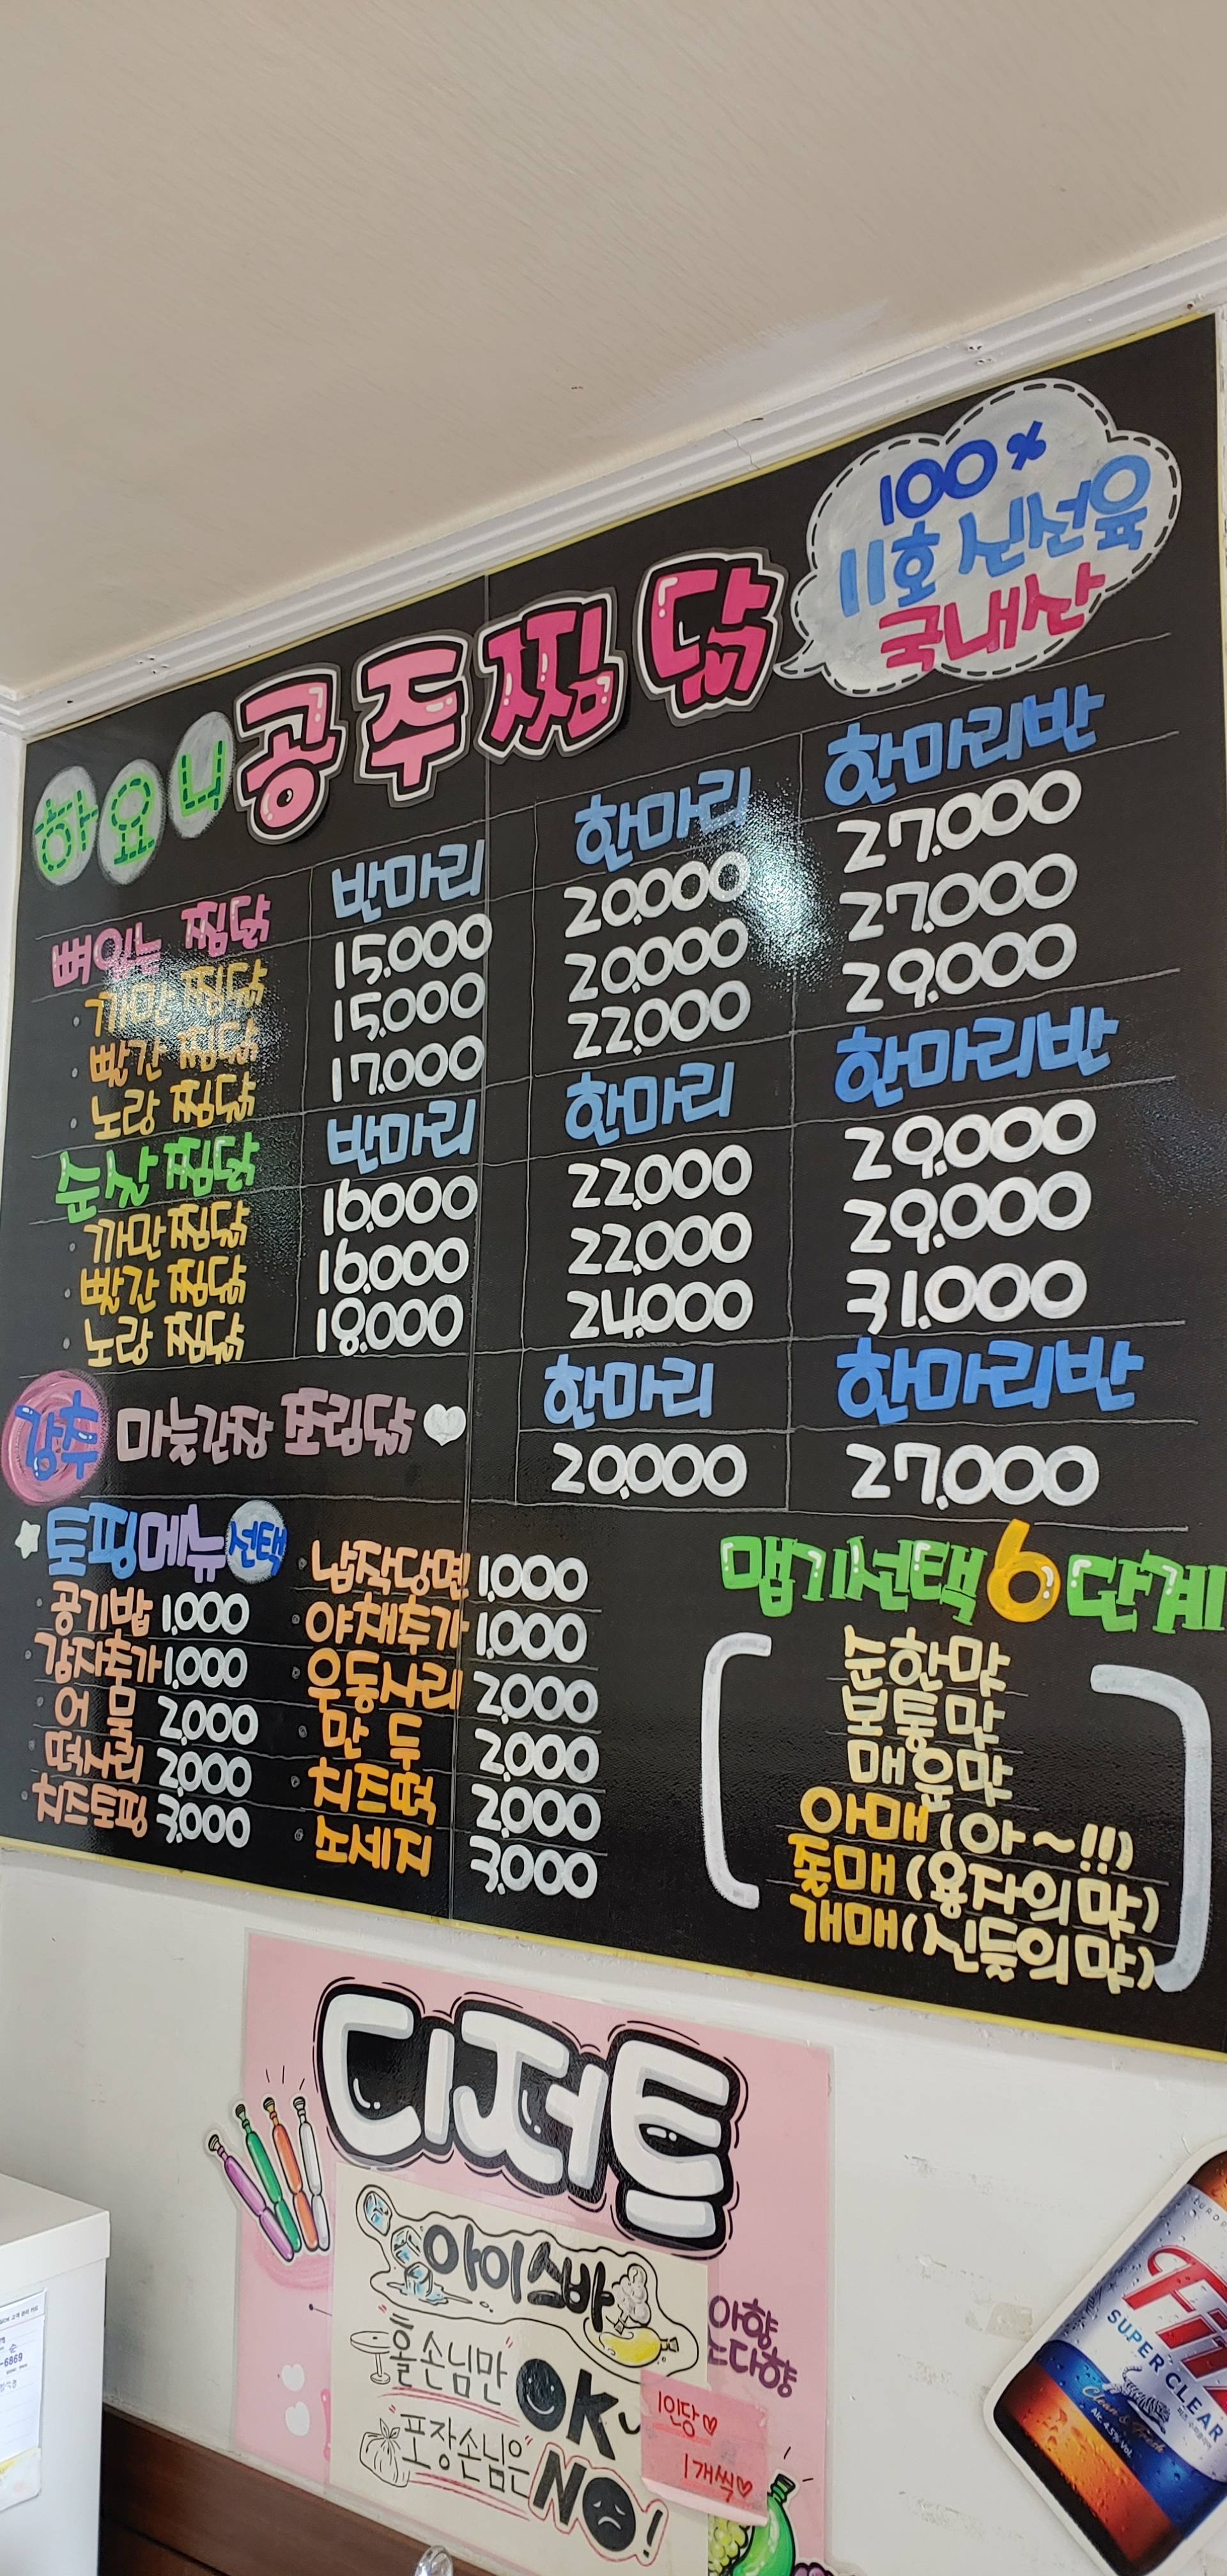 100%
11호 신선육
국내산
하요니 공주찜닭
뼈있는 찜닭 반마리 한마리 한마리반
· 까만 찜닭 15,000 20,000 27,000
· 빨간 찜닭 15,000 20,000 27,000
· 노랑 찜닭 17,000 22,000 29,000
순살 찜닭 반마리 한마리 한마리반
· 까만 찜닭 16,000 22,000 29,000
· 빨간 찜닭 16,000 22,000 29,000
· 노랑 찜닭 18,000 24,000 31,000
한마리 한마리반
강추 마늘간장 쪼림닭 20,000 27,000
토핑메뉴 선택
· 공기밥 1,000
· 감자추가 1,000
· 어묵 2,000
· 떡사리 2,000
· 치즈토핑 3,000
· 납작당면 1,000
· 야채추가 1,000
· 우동사리 2,000
· 만두 2,000
· 치즈떡 2,000
· 소세지 3,000
맵기선택 6단계
순한맛
보통맛
매운맛
아매 (아~!!)
좋매 (용자의 맛)
개매 (신들의 맛)
디저트
아이스바
홀손님만 OK~
포장손님은 NO!
1인당♡
1개씩♡
아향
소다향
Fitz
SUPER CLEAR
Clean & Fresh
Alc. 4.5% Vol.
-6869